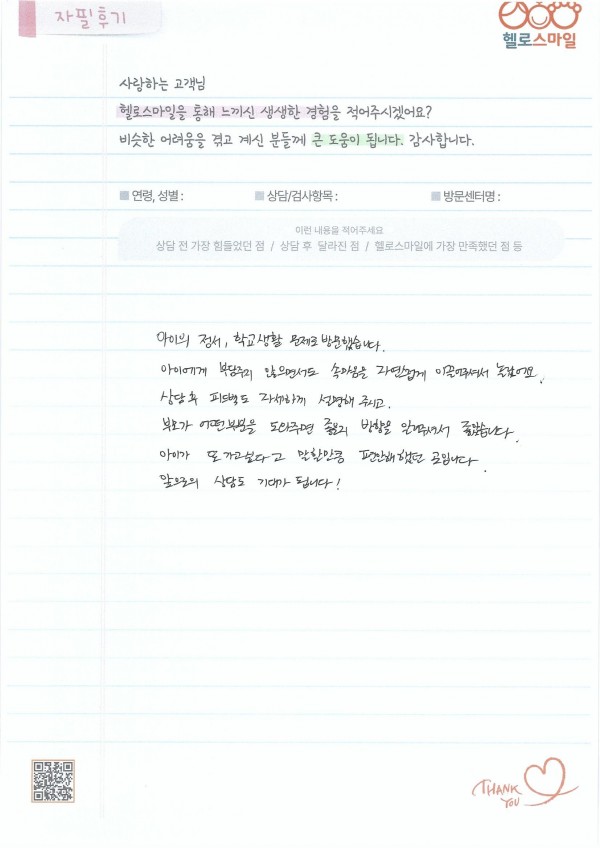 자필후기
헬로스마일
사랑하는 고객님
헬로스마일을 통해 느끼신 생생한 경험을 적어주시겠어요?
비슷한 어려움을 겪고 계신 분들께 큰 도움이 됩니다. 감사합니다.
연령, 성별 : 상담/검사항목 : 방문센터명 :
이런 내용을 적어주세요
상담 전 가장 힘들었던 점 / 상담 후 달라진 점 / 헬로스마일에 가장 만족했던 점 등
아이의 정서, 학교생활 문제로 방문했습니다.
아이에게 부담주지 않으면서도 속마음을 자연스럽게 이끌어주셔서 놀랐어요.
상담후 피드백도 자세하게 설명해 주시고.
부모가 어떤부분을 도와주면 좋을지 방향을 알려주셔서 좋았습니다.
아이가 또 가고싶다고 말할만큼 편안해했던 곳입니다.
앞으로의 상담도 기대가 됩니다!
THANK
YOU